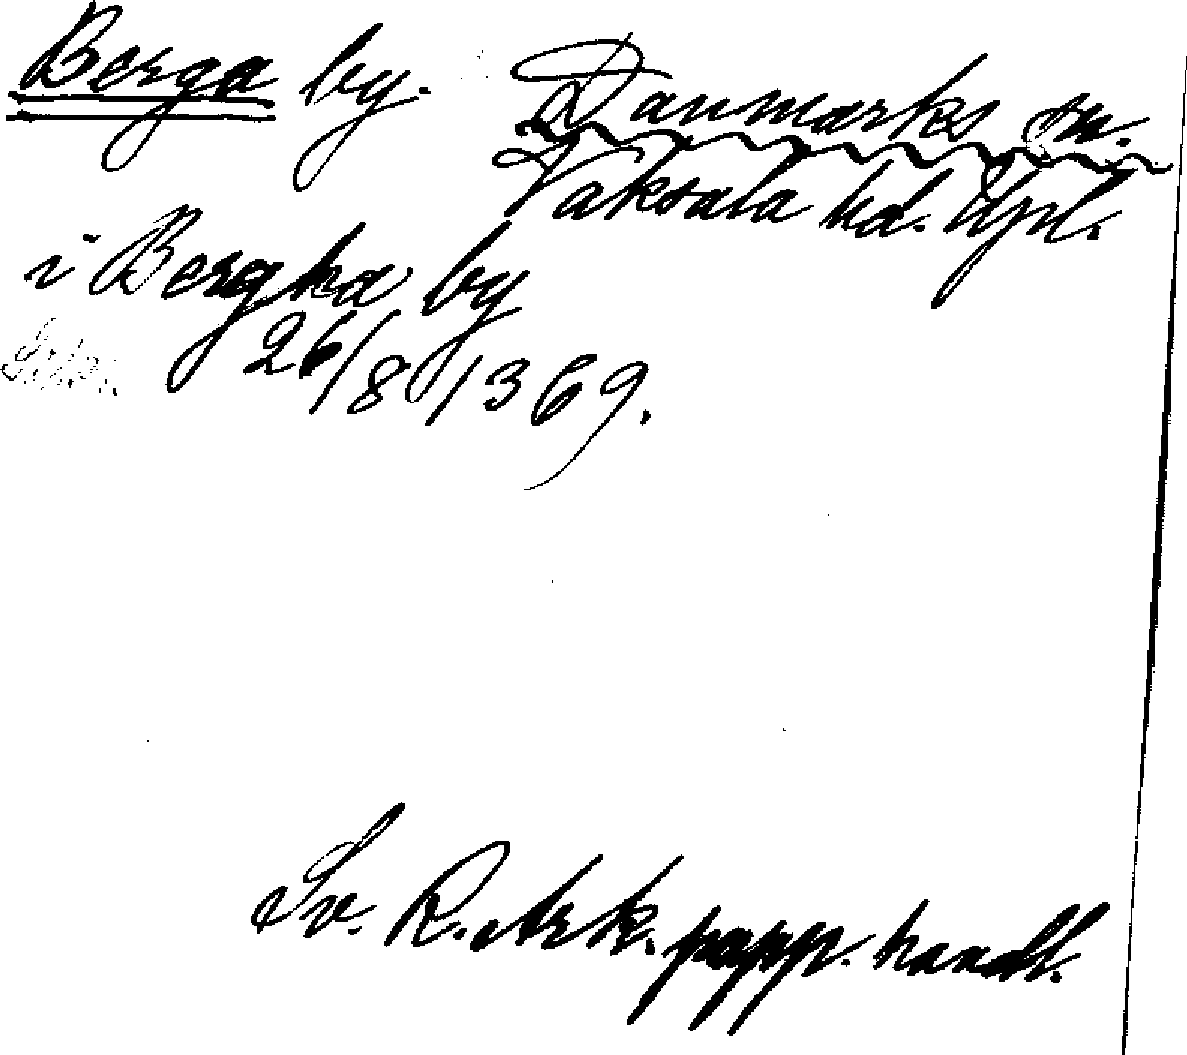 Berga by. Danmarks sn.
Vaksala hd. Upl.
i Bergha by
26/8 1369.
Sv. R. Ark. papp. handl.